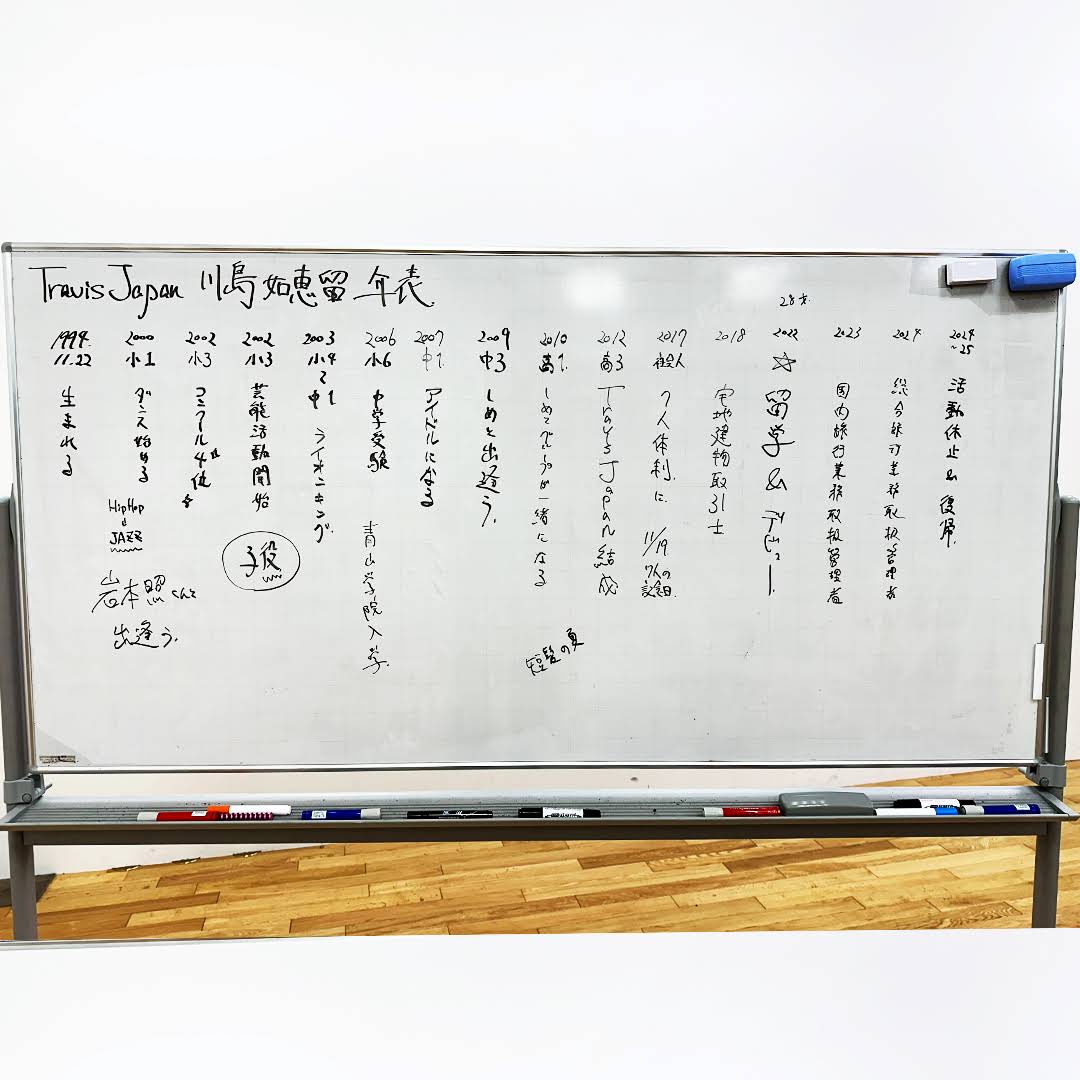 Travis Japan 川島如恵留 年表
1994.
11.22
生まれる
2000
小1
ダンス始める
HipHop
JAZZ
岩本照くんと
出逢う。
2002
小3
4位
2002
小3
芸能活動開始
子役
2003
小4
〜
中1
ライオンキング
2006
小6
中学受験
青山学院入学
2007
中1
アイドルになる
2009
中3
しめと出逢う。
2010
高1
しめと が一緒になる
短髪の夏
2012
高3
Travis Japan 結成
2017
社会人
7人体制に
11/19
7人の
記念日
2018
宅地建物取引士
28才
2022
☆
留学&デビュー
2023
国内旅行業務取扱管理者
2024
総合旅行業務取扱管理者
2024
~25
活動休止&復帰